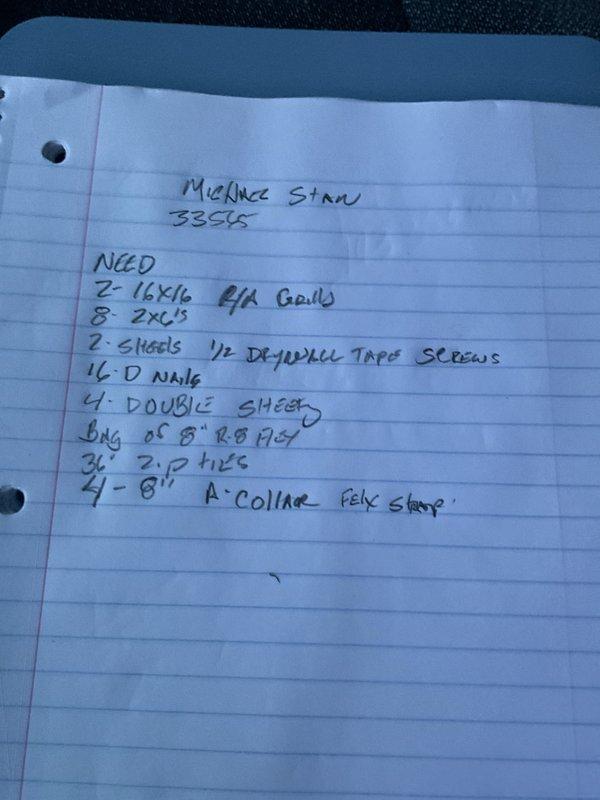 MICHAEL STAN
33545
NEED
2- 16X16 R/A Grills
8- 2x6's
2- SHEELS 1/2 DRYWALL TAPE SCREWS
16-D NAILS
4- DOUBLE SHEELS
BAG OF 8" R-8 FLEX
36" Z.P TIES
4 - 8" A-COLLAR FELX STRAP